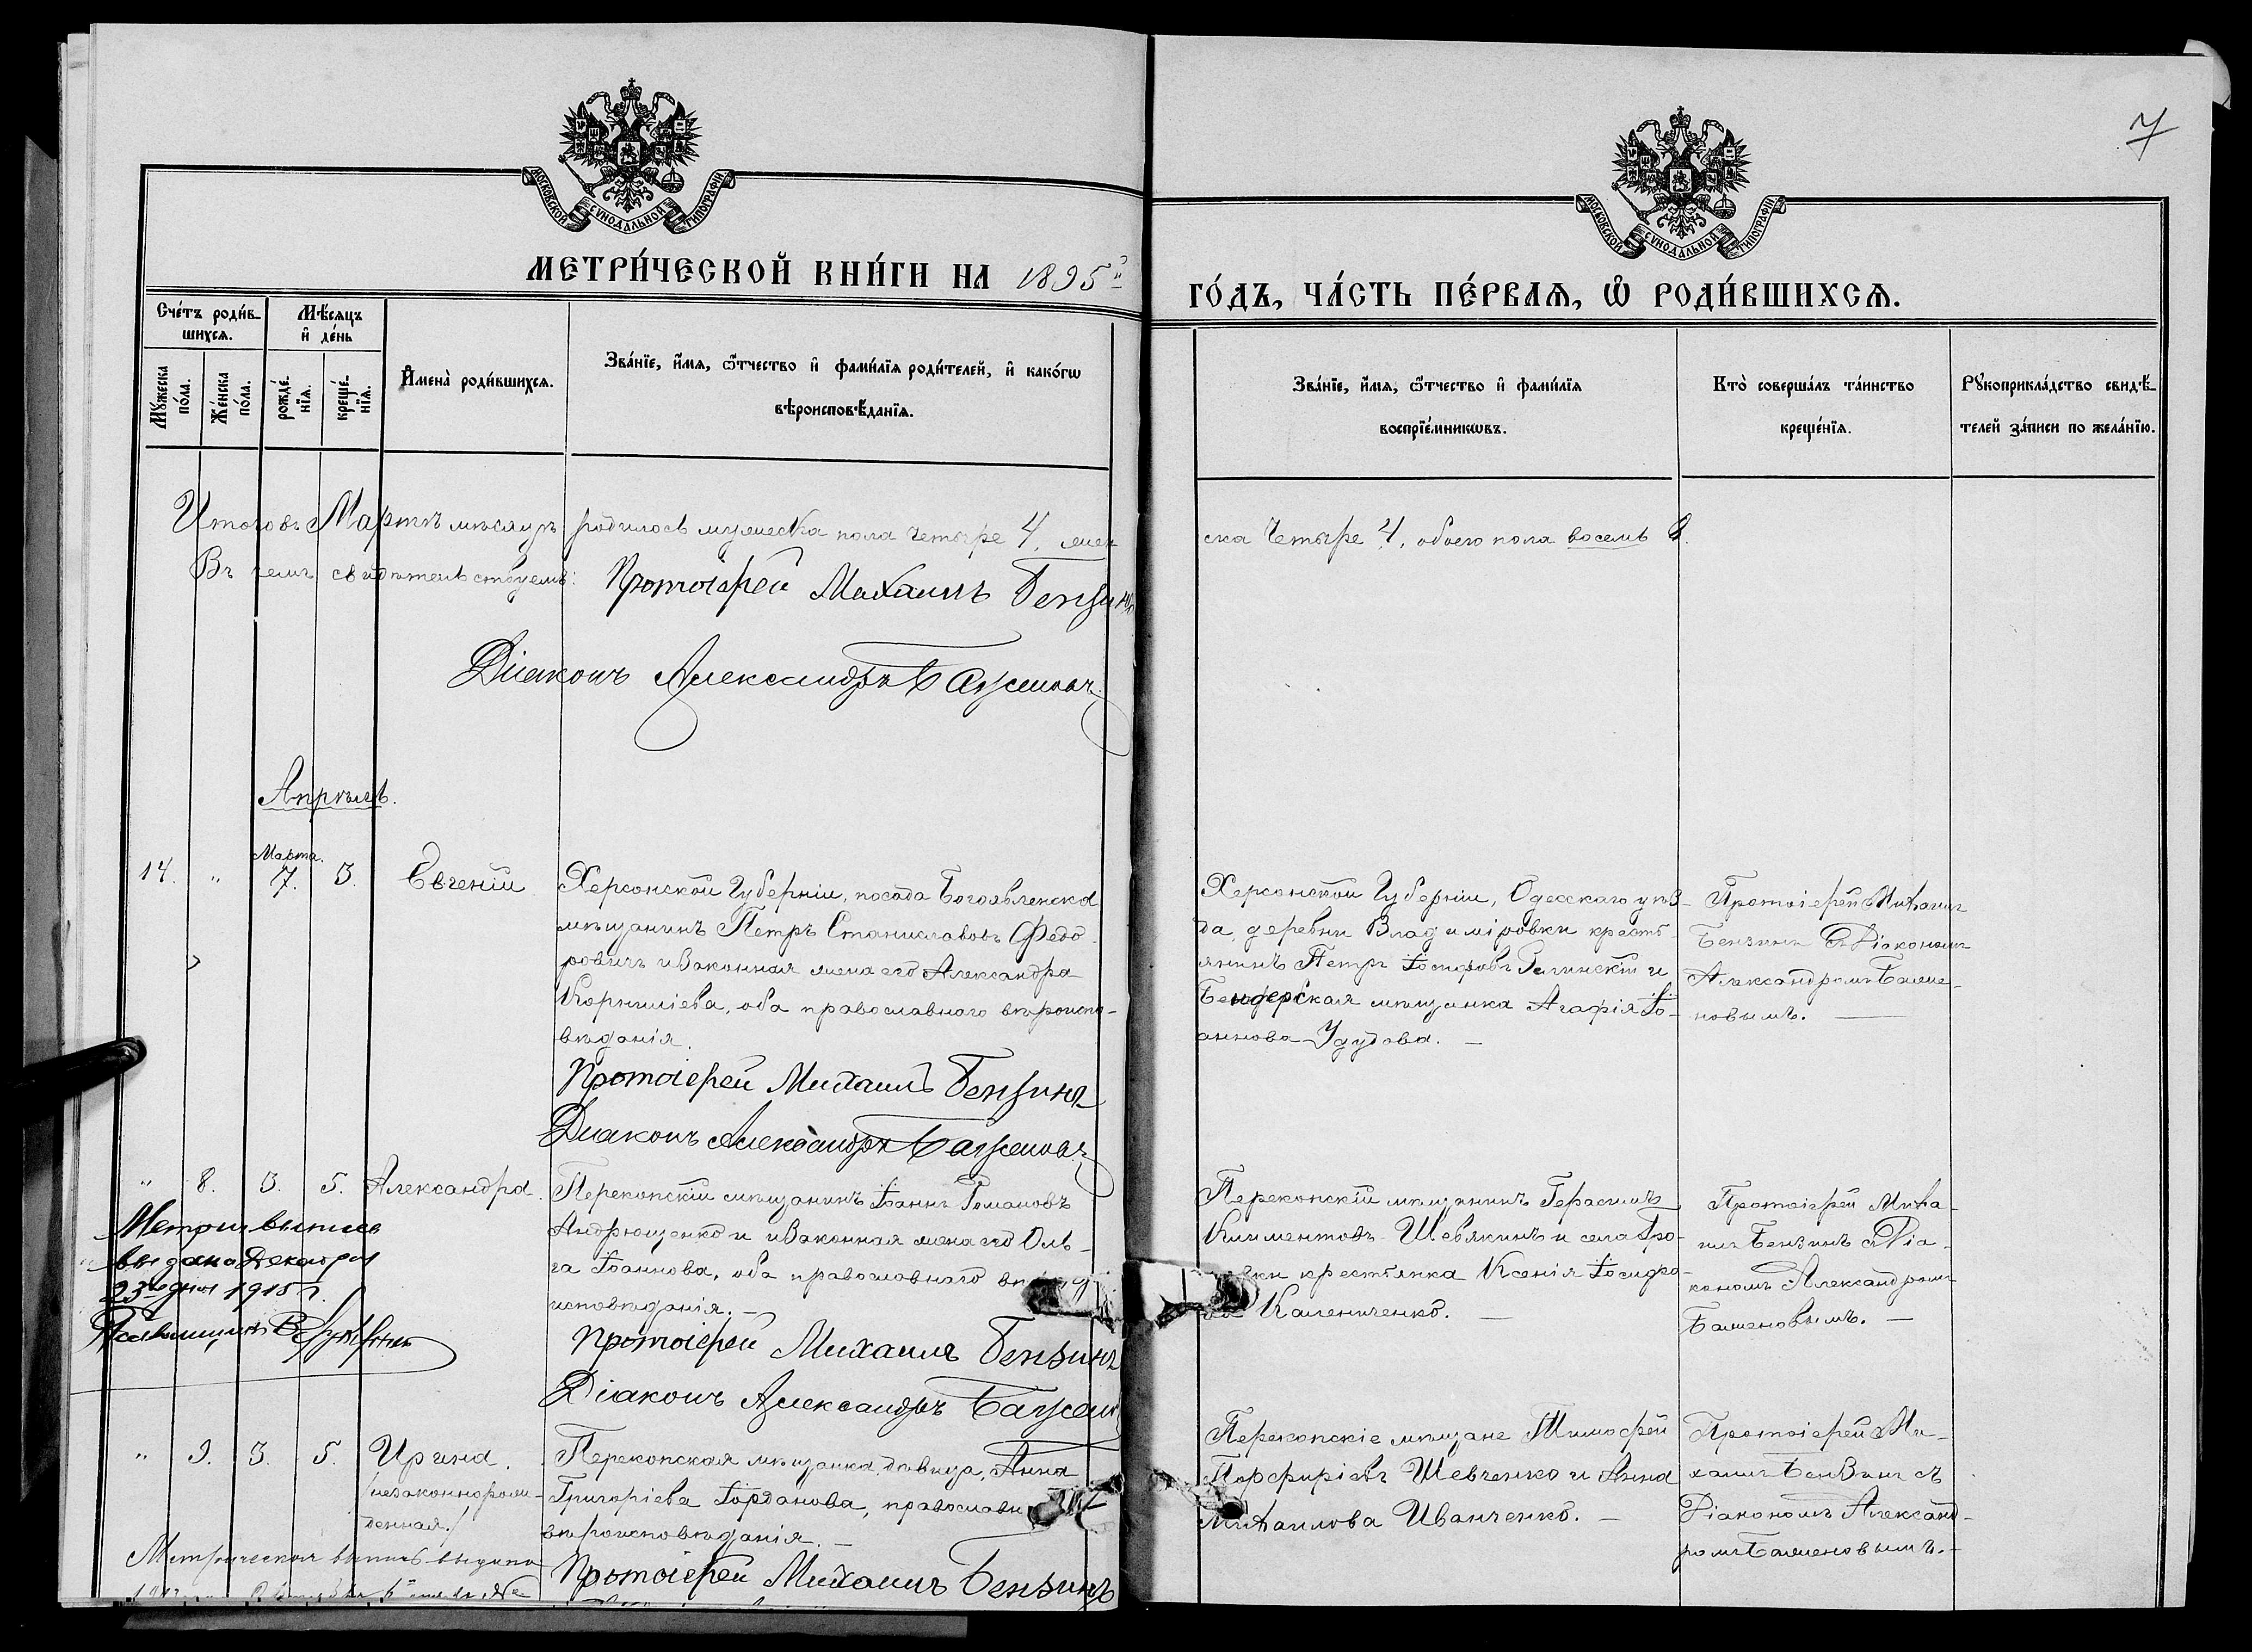 7
МОСКОВСКОЙ СѴНОДАЛЬНОЙ ТИПОГРАФІИ
МОСКОВСКОЙ СѴНОДАЛЬНОЙ ТИПОГРАФІИ
МЕТРИ́ЧЕСКОЙ КНИ́ГИ НА 1895й
ГО́ДЪ, ЧА́СТЬ ПЕ́РВАѦ, Ѡ҆ РОДИ́ВШИХСѦ.
Сче́тъ роди́в-
шихсѧ.
Мѣ́сяцъ
и҆ де́нь
Мꙋ́жеска
по́ла.
Же́нска
по́ла.
рожде́-
нїѧ.
креще́-
нїѧ.
И҆мена̀ роди́вшихсѧ.
Зва́нїе, и҆́мѧ, ѻ҆́тчество и҆ фами́лїѧ роди́телей, и҆ како́гѡ
вѣроисповѣ́данїѧ.
Зва́нїе, и҆́мѧ, ѻ҆́тчество и҆ фами́лїѧ
воспрїе́мникѡвъ.
Кто̀ соверша́лъ та́инство
креще́нїѧ.
Рꙋкоприкла́дство свидѣ́-
телей за́писи по жела́нїю.
Итого въ Мартѣ мѣсяцѣ родилось мужеска пола четыре 4, жен
ска Четыре 4, обоего пола восемь 8.
Въ чемъ свидѣтельствуемъ: Протоіерей Михаилъ Бензинъ
Діаконъ Александръ Баженовъ
Апрѣль.
Марта.
14. " 7. 3. Евгеній
Херсонской Губерніи, посада Богоявленска
мѣщанинъ Петръ Станиславовъ Федо
ровичъ и законная жена его Александра
Корниліева, оба православнаго вѣроиспо-
вѣданія.
Протоіерей Михаилъ Бензинъ
Діаконъ Александръ Баженовъ
Херсонской Губерніи, Одесскаго уѣз-
да, деревни Владиміровки кресть-
янинъ Петръ Іосифовъ и
Бендерская мѣщанка Агафія Іо-
аннова Удудова. –
Протоіерей Михаилъ
Бензинъ съ Діакономъ
Александромъ Баже-
новымъ. —
" 8. 3. 5. Александра.
Перекопскій мѣщанинъ Іоаннъ Романовъ
Андрющенко и законная жена его Оль-
га Іоаннова, оба православнаго вѣро
исповѣданія. –
Протоіерей Михаилъ Бензинъ
Діаконъ Александръ Баженовъ
Перекопскій мѣщанинъ Герасимъ
Климентовъ Шевякинъ и села
крестьянка Ксенія Іосифо-
ва Калениченко. –
Протоіерей Миха-
илъ Бензинъ съ Діа-
кономъ Александромъ
Баженовымъ. –
Метрич выпись
выдана Декабря
23го дня 1915 г.
" 9. 3. 5. Ирина.
(незаконнорож-
денная.)
Перекопская мѣщанка, дѣвица, Анна
Григоріева Іорданова, православн
вѣроисповѣданія. –
Протоіерей Михаилъ Бензинъ
Перекопскіе мѣщане Тимофей
Порфиріевъ Шевченко и Анна
Михаилова Иванченко. –
Протоіерей Ми-
хаилъ Бензинъ съ
Діакономъ Александ-
ромъ Баженовымъ. –
Метрическая выпись выдана